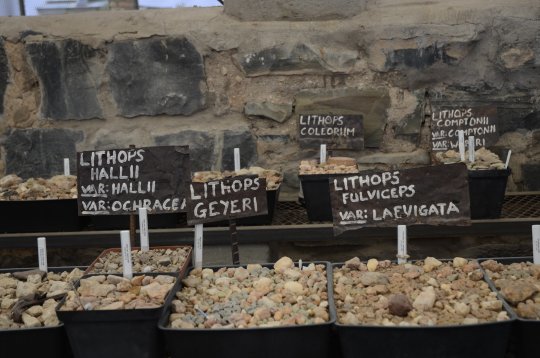 LITHOPS
COLEORUM
LITHOPS
COMPTONII
VAR: COMPTONII
VAR: W
LITHOPS
HALLII
VAR: HALLII
VAR: OCHRACEA
LITHOPS
GEYERI
LITHOPS
FULVICEPS
VAR: LAEVIGATA